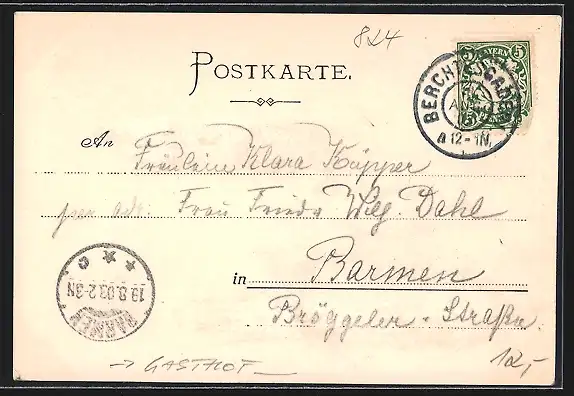 824
POSTKARTE.
BAYERN
5 5
BERCHTESGADEN
12-1N.
An Fräulein Klara Küpper
per adr. Frau Frieda Wilh. Dahl
in Barmen
Bröggeler-Straße.
BARMEN
19.8.03.2-3N
* * C
→ GASTHOF —
12,-